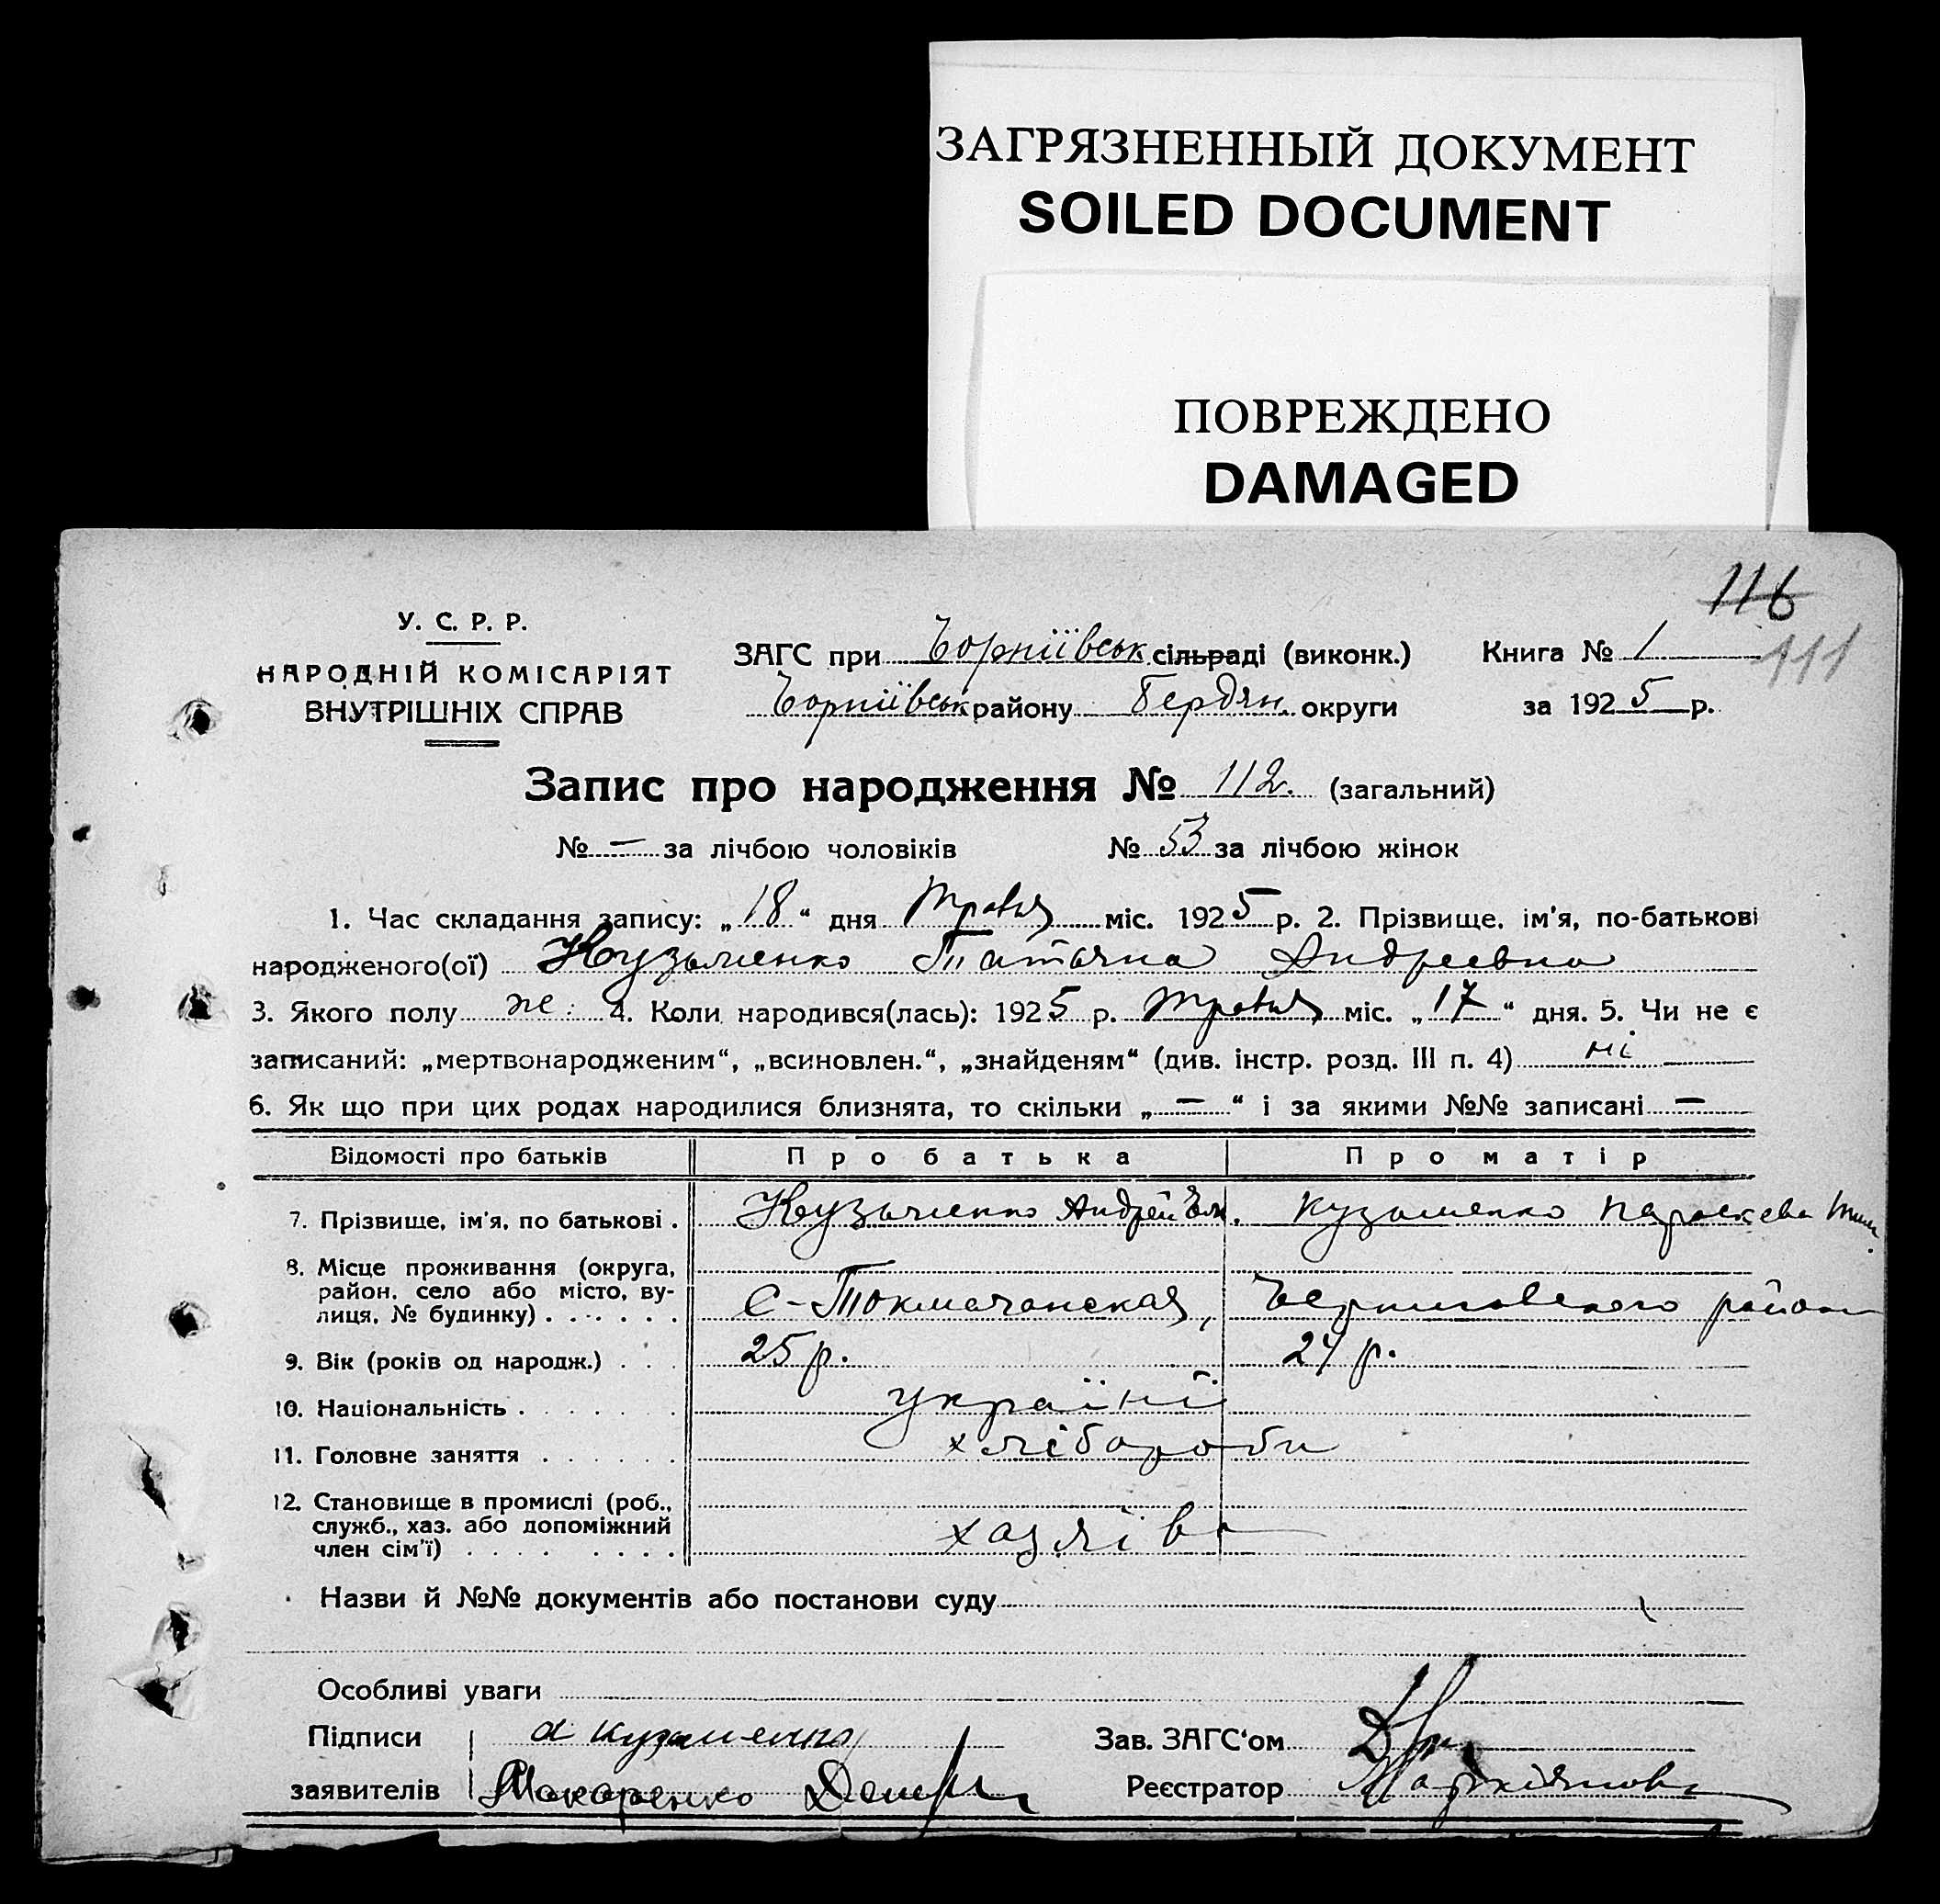 ЗАГРЯЗНЕННЫЙ ДОКУМЕНТ
SOILED DOCUMENT
ПОВРЕЖДЕНО
DAMAGED
116
111
У. С. Р. Р.
НАРОДНІЙ КОМІСАРІЯТ
ВНУТРІШНІХ СПРАВ
ЗАГС при сільраді (виконк.) Книга № 1
району Бердян. округи за 1925 р.
Запис про народження № 112. (загальний)
№ — за лічбою чоловіків № 53 за лічбою жінок
1. Час складання запису: „18“ дня Травня міс. 1925 р. 2. Прізвище, ім'я, по-батькові
народженого(ої) Кузьменко Татьяна Андреевна
3. Якого полу ж. 4. Коли народився(лась): 1925 р. Травня міс. „17“ дня. 5. Чи не є
записаний: „мертвонародженим“, „всиновлен.“, „знайденям“ (див. інстр. розд. III п. 4) ні
6. Як що при цих родах народилися близнята, то скільки „—“ і за якими №№ записані —
Відомості про батьків Про батька Про матір
7. Прізвище, ім'я, по батькові . Кузьменко Андрей Кузьменко Параскева
8. Місце проживання (округа,
район, село або місто, ву-
лиця, № будинку) . . . . . . С-Токмачанская, Черниговского района
9. Вік (років од народж.) . . . 25 р. 24 р.
10. Національність . . . . . . україні
11. Головне заняття . . . . . . хлібороби
12. Становище в промислі (роб.,
служб., хаз. або допоміжний
член сім'ї) . . . . . . . . хазяїва
Назви й №№ документів або постанови суду
Особливі уваги
Підписи а кузьменко Зав. ЗАГС'ом
заявителів Макаренко Реєстратор